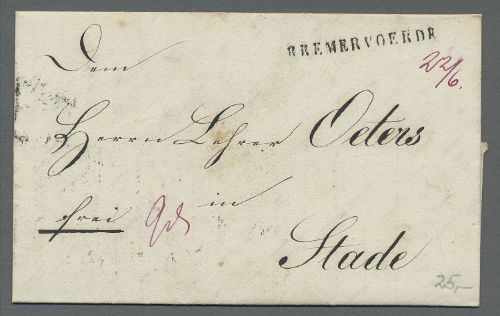 BREMERVOERDE
22/6.
Dem
Herrn Lehrer Oeters
in
frei
Stade
25,-